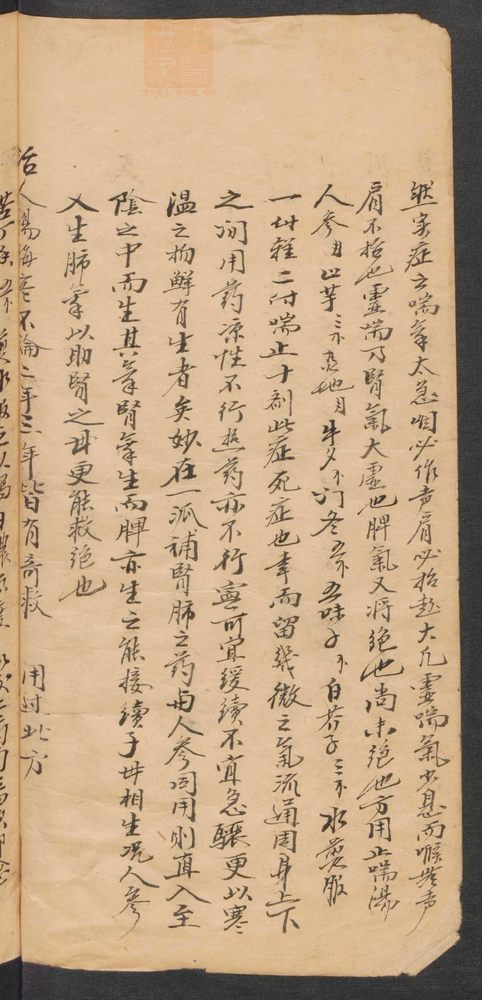 然实症之喘氣太急喉必作声肩必抬起大凡虛喘氣少息而喉無声
肩不抬也虛喘乃腎氣大虛也脾氣又將絕也尚未絕也方用止喘湯
人參 山芋三 熟地 牛夕 门冬 五味子 白芥子三 水煎服
一付輕二付喘止十劑此症死症也幸而留幾微之氣流通周身上下
之间用药凉性不行热药亦不行寧可宜缓續不宜急驟更以寒
温之物鮮有生者矣妙在一派補腎肺之药與人參同用则直入至
陰之中而生其氣腎氣生而脾亦生之能接續子母相生况人參
又生肺氣以助腎之母更能救绝也
治人鳥海 不論二年三年皆有奇救 用过此方